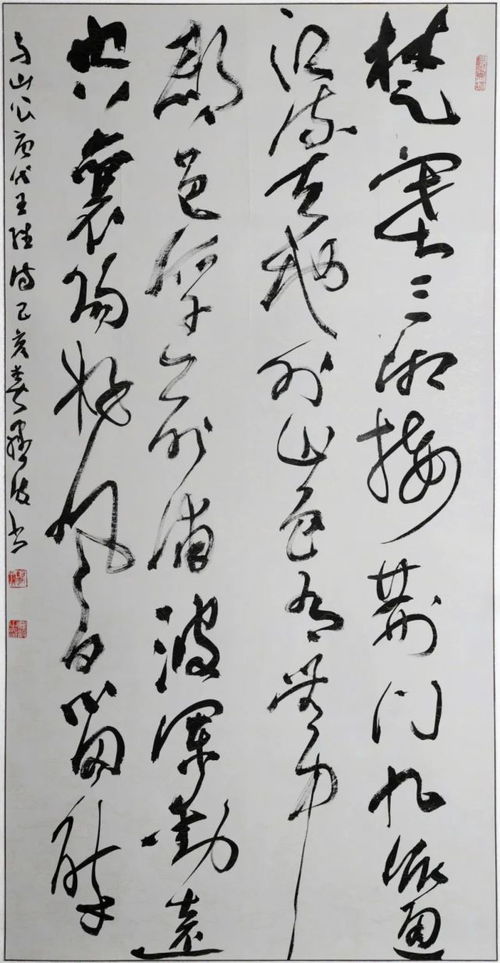 楚塞三湘接荆门九派通
江流天地外山色有无中
郡邑浮前浦波澜动远
空襄阳好风日留醉
与山公唐代王维诗己亥春波书